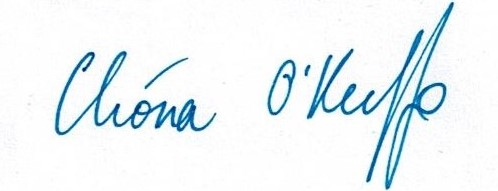 Clíona O'Keeffe